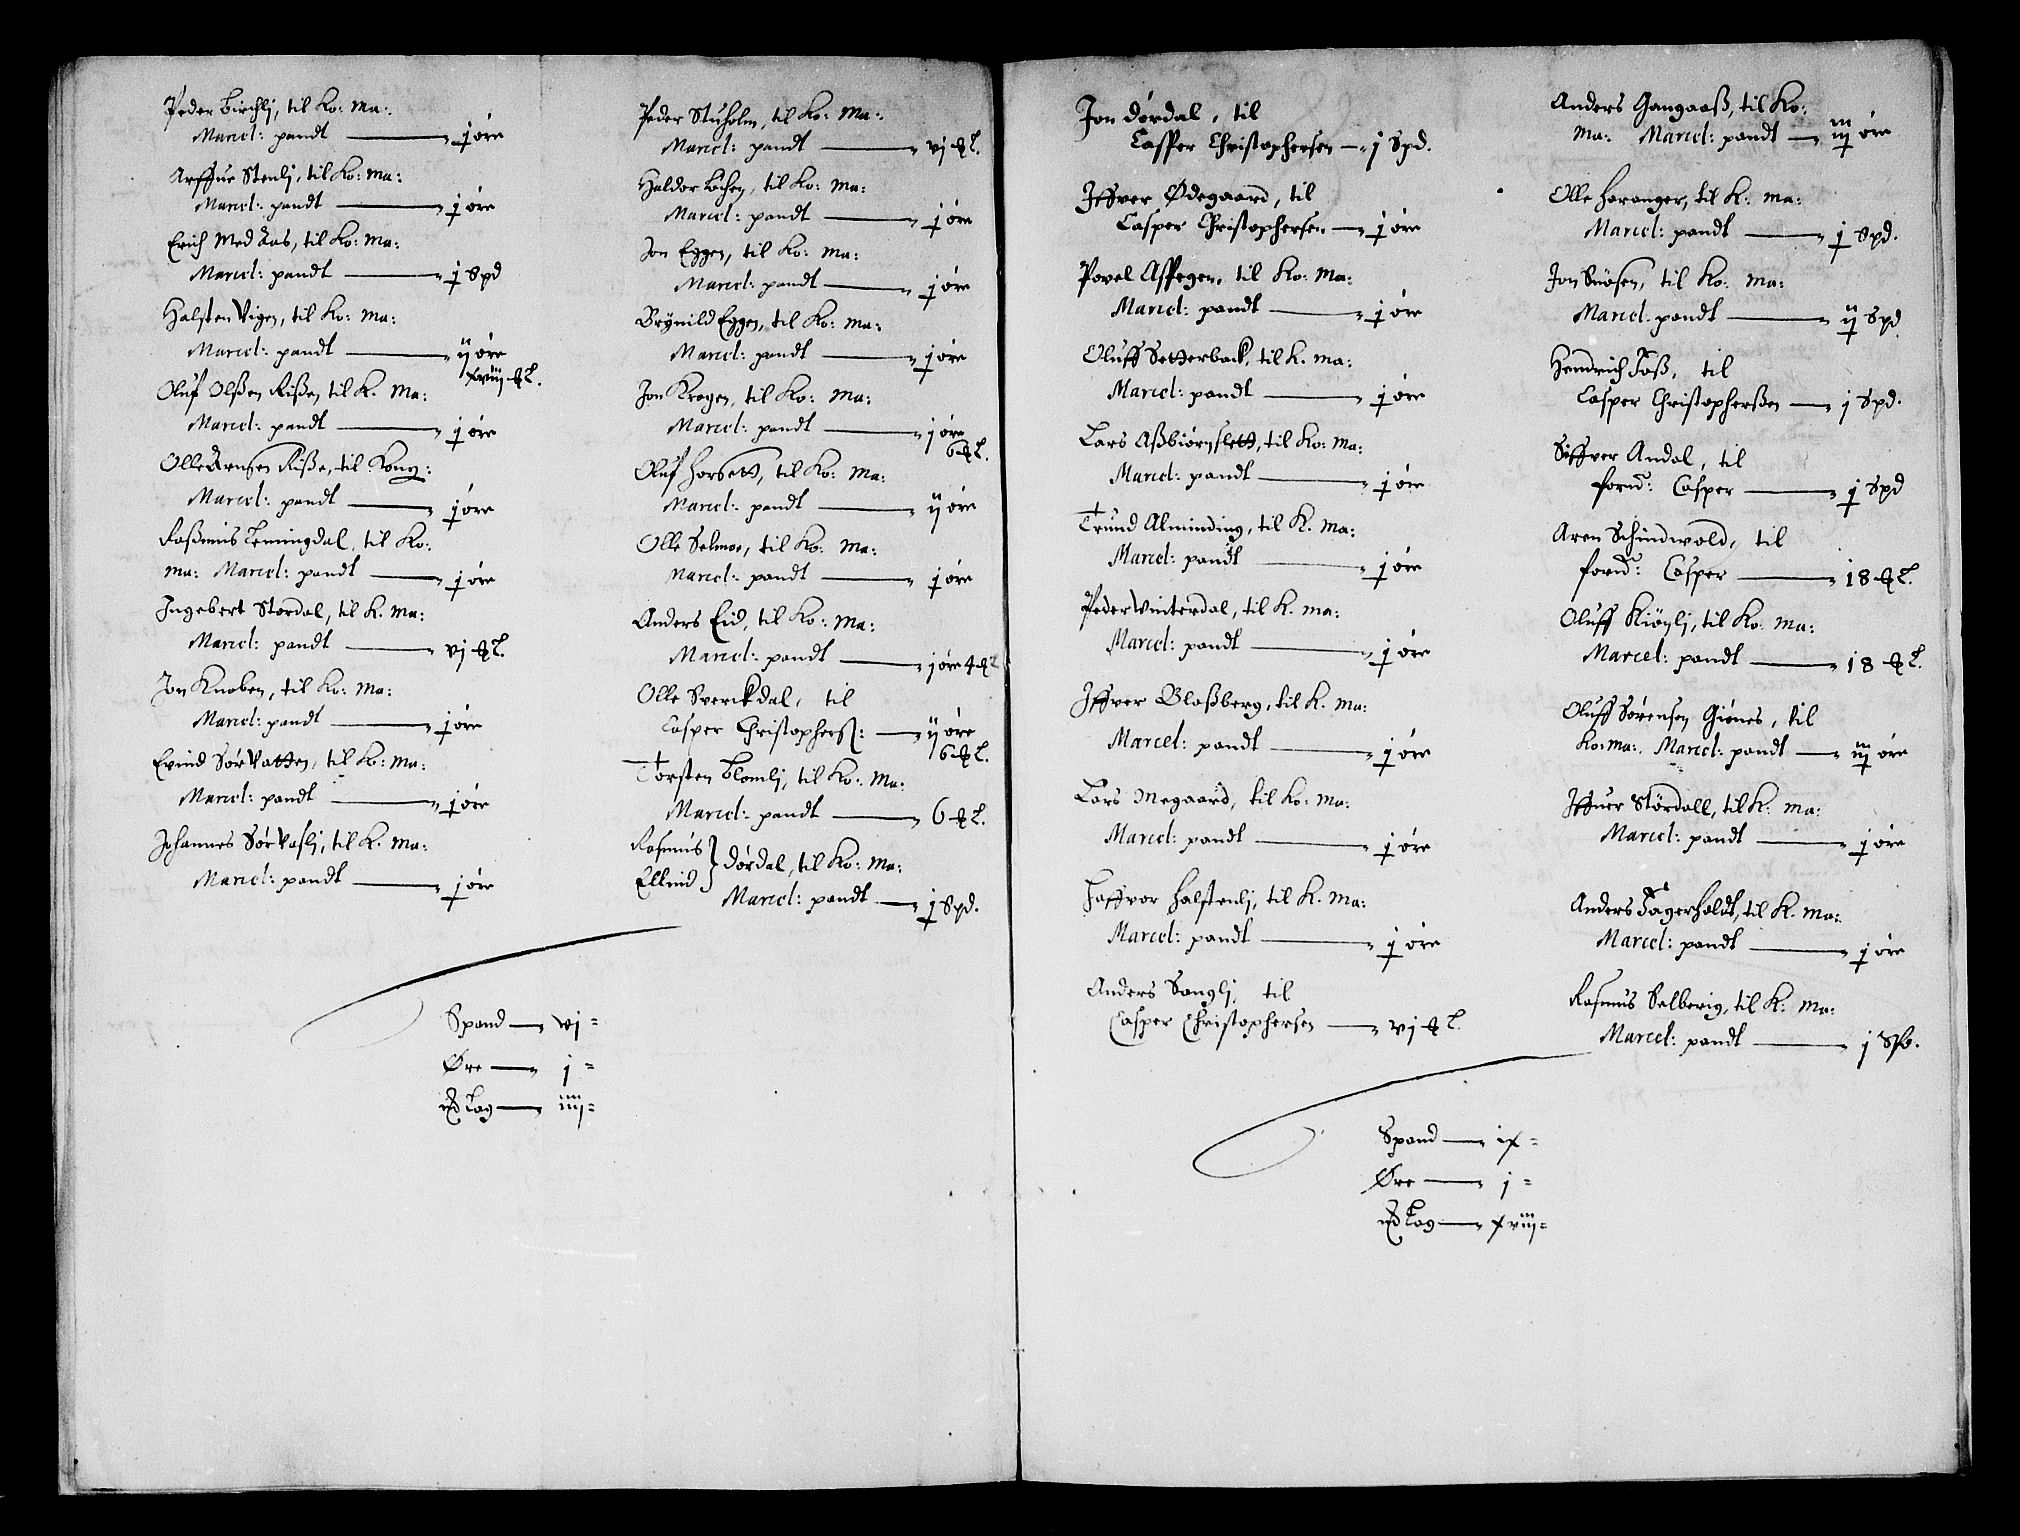 Peder Birchlj, til Ko: Ma:
Marcel: pandt — j øre
Arffue Stenlj, til Ko: Ma:
Marcel: pandt — j øre
Erich Med Aas, til Ko: Ma:
Marcel: pandt — j Spd
Halsten Vigen, til Ko: Ma:
Marcel: pandt — ij øre
xviij ℔ L.
Oluf Olßen Riße, til K. Ma:
Marcel: pandt — j øre
Olle Arnsen Riße, til Kong:
Marcel: pandt — j øre
Raßmus Lemingdal, til Ko:
Ma: Marcel: pandt — j øre
Ingebert Stordal, til K. Ma:
Marcel: pandt — vj ℔ L.
Jon Knoben, til Ko: Ma:
Marcel: pandt — j øre
Evind Sør Vatten, til Ko: Ma:
Marcel: pandt — j øre
Johannes Sør Vaslj, til K. Ma:
Marcel: pandt — j øre
Peder Stuholm, til Ko: Ma:
Marcel: pandt — vj ℔ L.
Haldor Lochen, til Ko: Ma:
Marcel: pandt — j øre
Jon Eggen, til Ko: Ma:
Marcel: pandt — j øre
Brÿnild Eggen, til Ko: Ma:
Marcel: pandt — j øre
Jon Krogen, til Ko: Ma:
Marcel: pandt — j øre
6 ℔ L.
Oluf Horsett, til Ko: Ma:
Marcel: pandt — ij øre
Olle Selmoe, til Ko: Ma:
Marcel: pandt — j øre
Anders Eid, til Ko: Ma:
Marcel: pandt — j øre 4 ℔ L
Olle Sverckdal, til
Casper Christophers: — ij øre
6 ℔ L.
Torsten Blomlj, til Ko: Ma:
Marcel: pandt — 6 ℔ L.
Rasmus
Ellind } Dørdal, til Ko: Ma:
Marcel: pandt — j Spd.
Spand — vj =
Øre — j =
℔ Lag — iiij =
Jon Dørdal, til
Casper Christophersen — j Spd.
Iffver Ødegaard, til
Casper Christophersen — j øre
Povel Aspegen, til Ko: Ma:
Marcel: pandt — j øre
Oluff Setterback, til K. Ma:
Marcel: pandt — j øre
Lars Aßbiørnslett, til Ko: Ma:
Marcel: pandt — j øre
Trund Alminding, til K. Ma:
Marcel: pandt — j øre
Peder Vinterdal, til K. Ma:
Marcel: pandt — j øre
Iffver Bloßberg, til K. Ma:
Marcel: pandt — j øre
Lars Megaard, til Ko: Ma:
Marcel: pandt — j øre
Haffvor Halstenlj, til K. Ma:
Marcel: pandt — j øre
Anders Songlj, til
Casper Christophersen — vj ℔ L.
Anders Gangaaß, til Ko:
Ma: Marcel: pandt — iij øre
Olle Horanger, til K: Ma:
Marcel: pandt — j Spd.
Jon Snøsen, til Ko: Ma:
Marcel: pandt — ij Spd
Hendrich Foß, til
Casper Christopherßen — j Spd.
Siffver Andal, til
fornd: Casper — j Spd
Aren Schindwold, til
fornd: Casper — 18 ℔ L.
Oluff Kiönlj, til Ko: Ma:
Marcel: pandt — 18 ℔ L.
Oluff Sørensen Giønes, til
Ko: Ma: Marcel: pandt — iij øre
Iffuer Stördall, til K: Ma:
Marcel: pandt — j øre
Anders Fagerholdt, til K. Ma:
Marcel: pandt — j øre
Rasmus Selberig, til K: Ma:
Marcel: pandt — j Spd.
Spand — ix =
Øre — j =
℔ Lag — xviij =